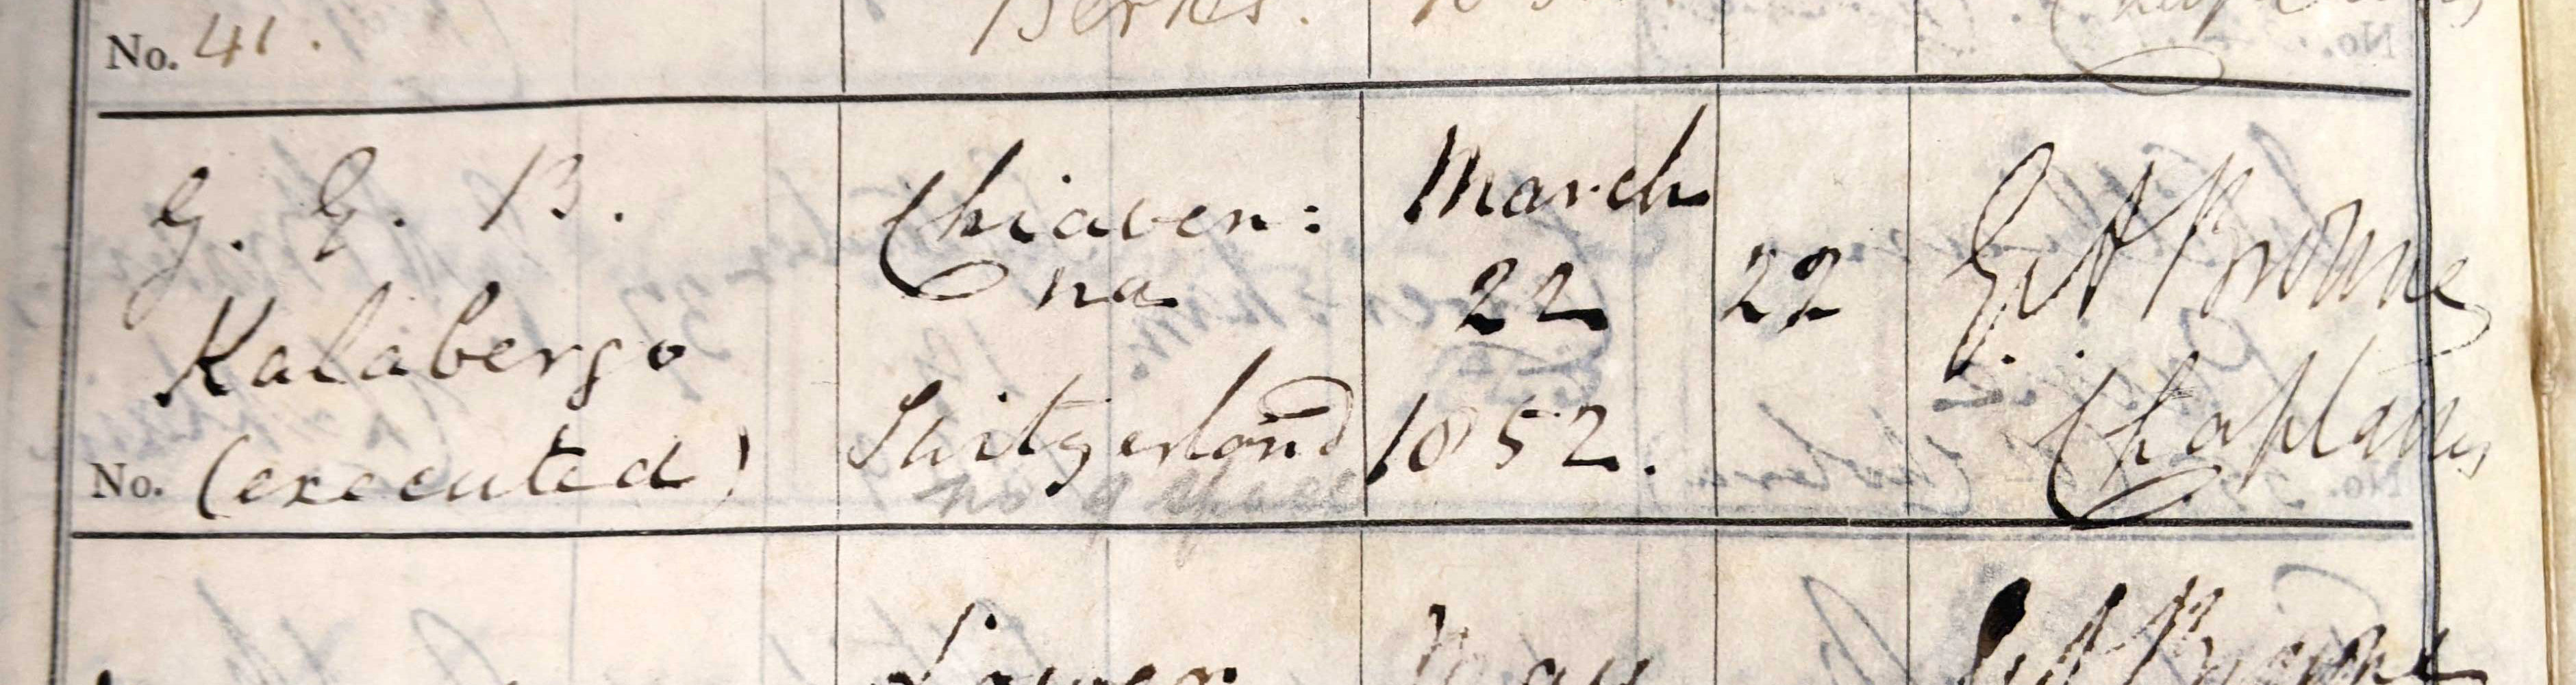 No. 41.
Berks.
G. G. B.
Kalabergo
No. (executed)
Chiaven:
na
Switzerland
March
22
1852.
22
Browne
Chaplain
Lower
May